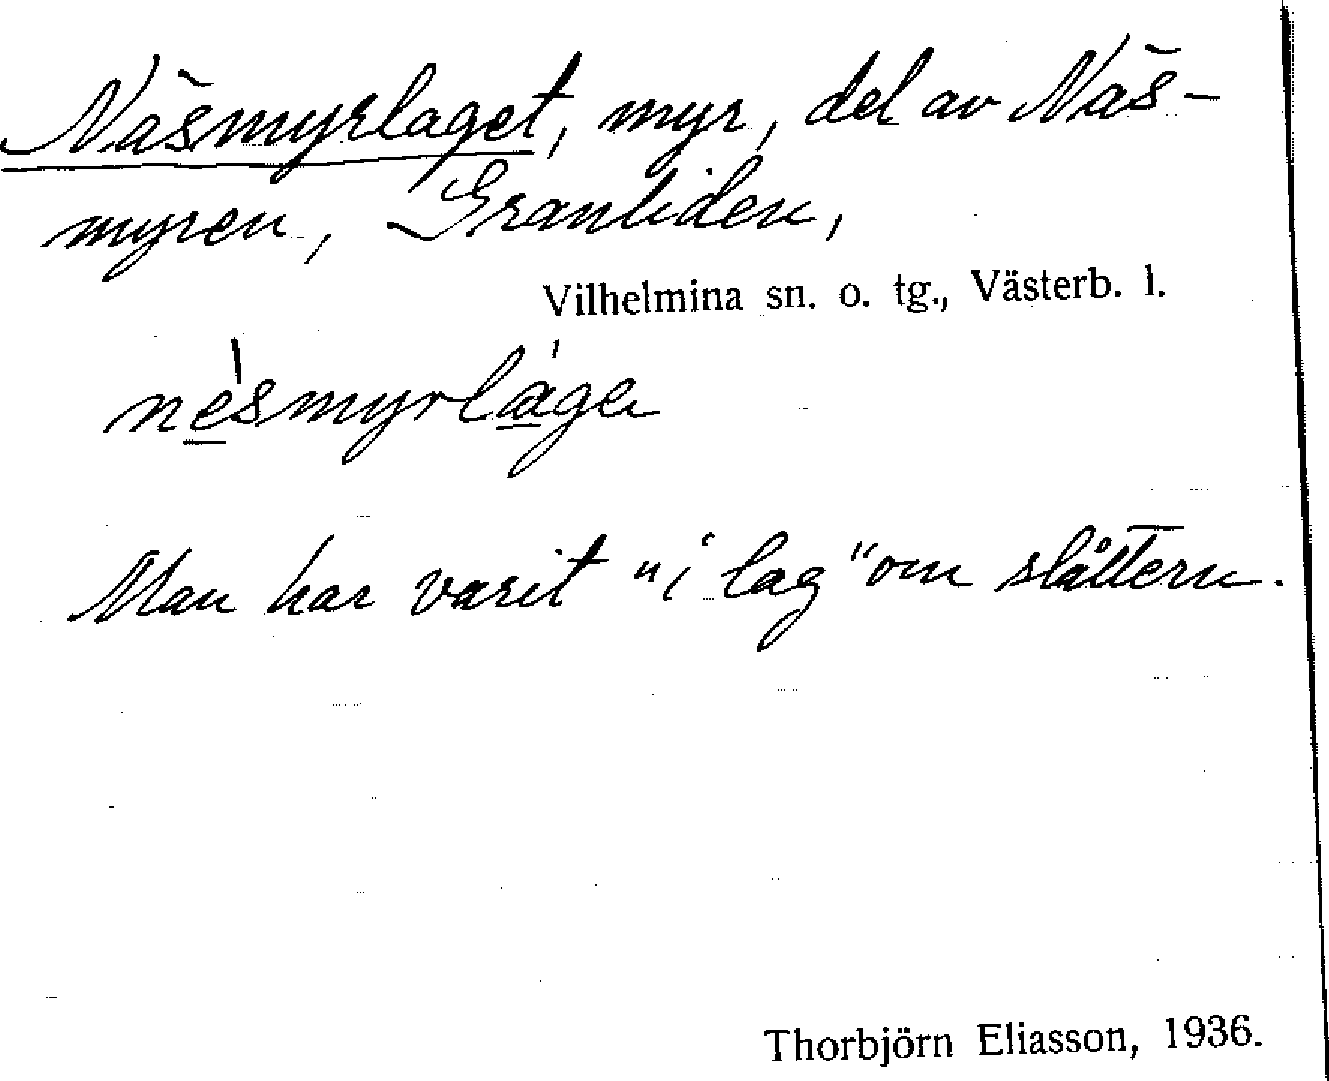 Näsmyrlaget, myr, del av Näs-
myren, Granliden,
Vilhelmina sn. o. tg., Västerb. l.
nèsmyrlága
Man har varit "i lag" om slåttern.
Thorbjörn Eliasson, 1936.